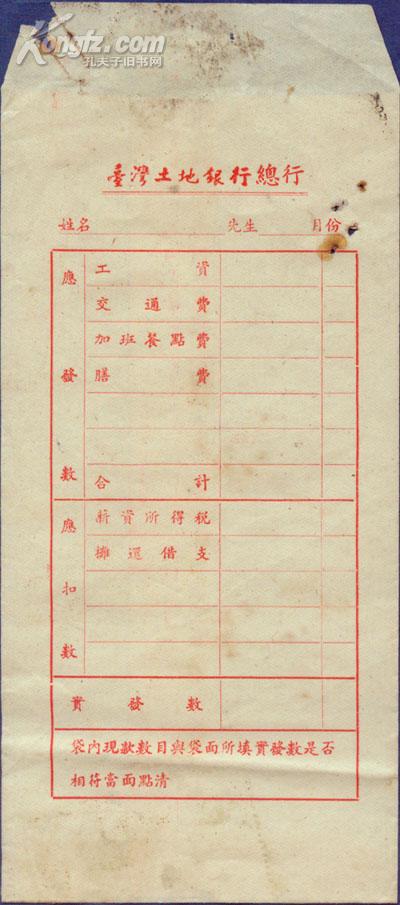 Kongfz.com
孔夫子旧书网
臺灣土地銀行總行
姓名 先生 月份
應發數
工資
交通費
加班餐點費
膳費
合計
應扣數
薪資所得税
攤還借支
實發數
袋內現款數目與袋面所填實發數是否
相符當面點清